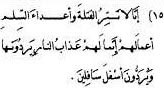 (١٥) إنا لا نسر القتلة وأعداء السلم
أعمالهم إنما لهم عذاب النار يردونها
ويردون أسفل سافلين.